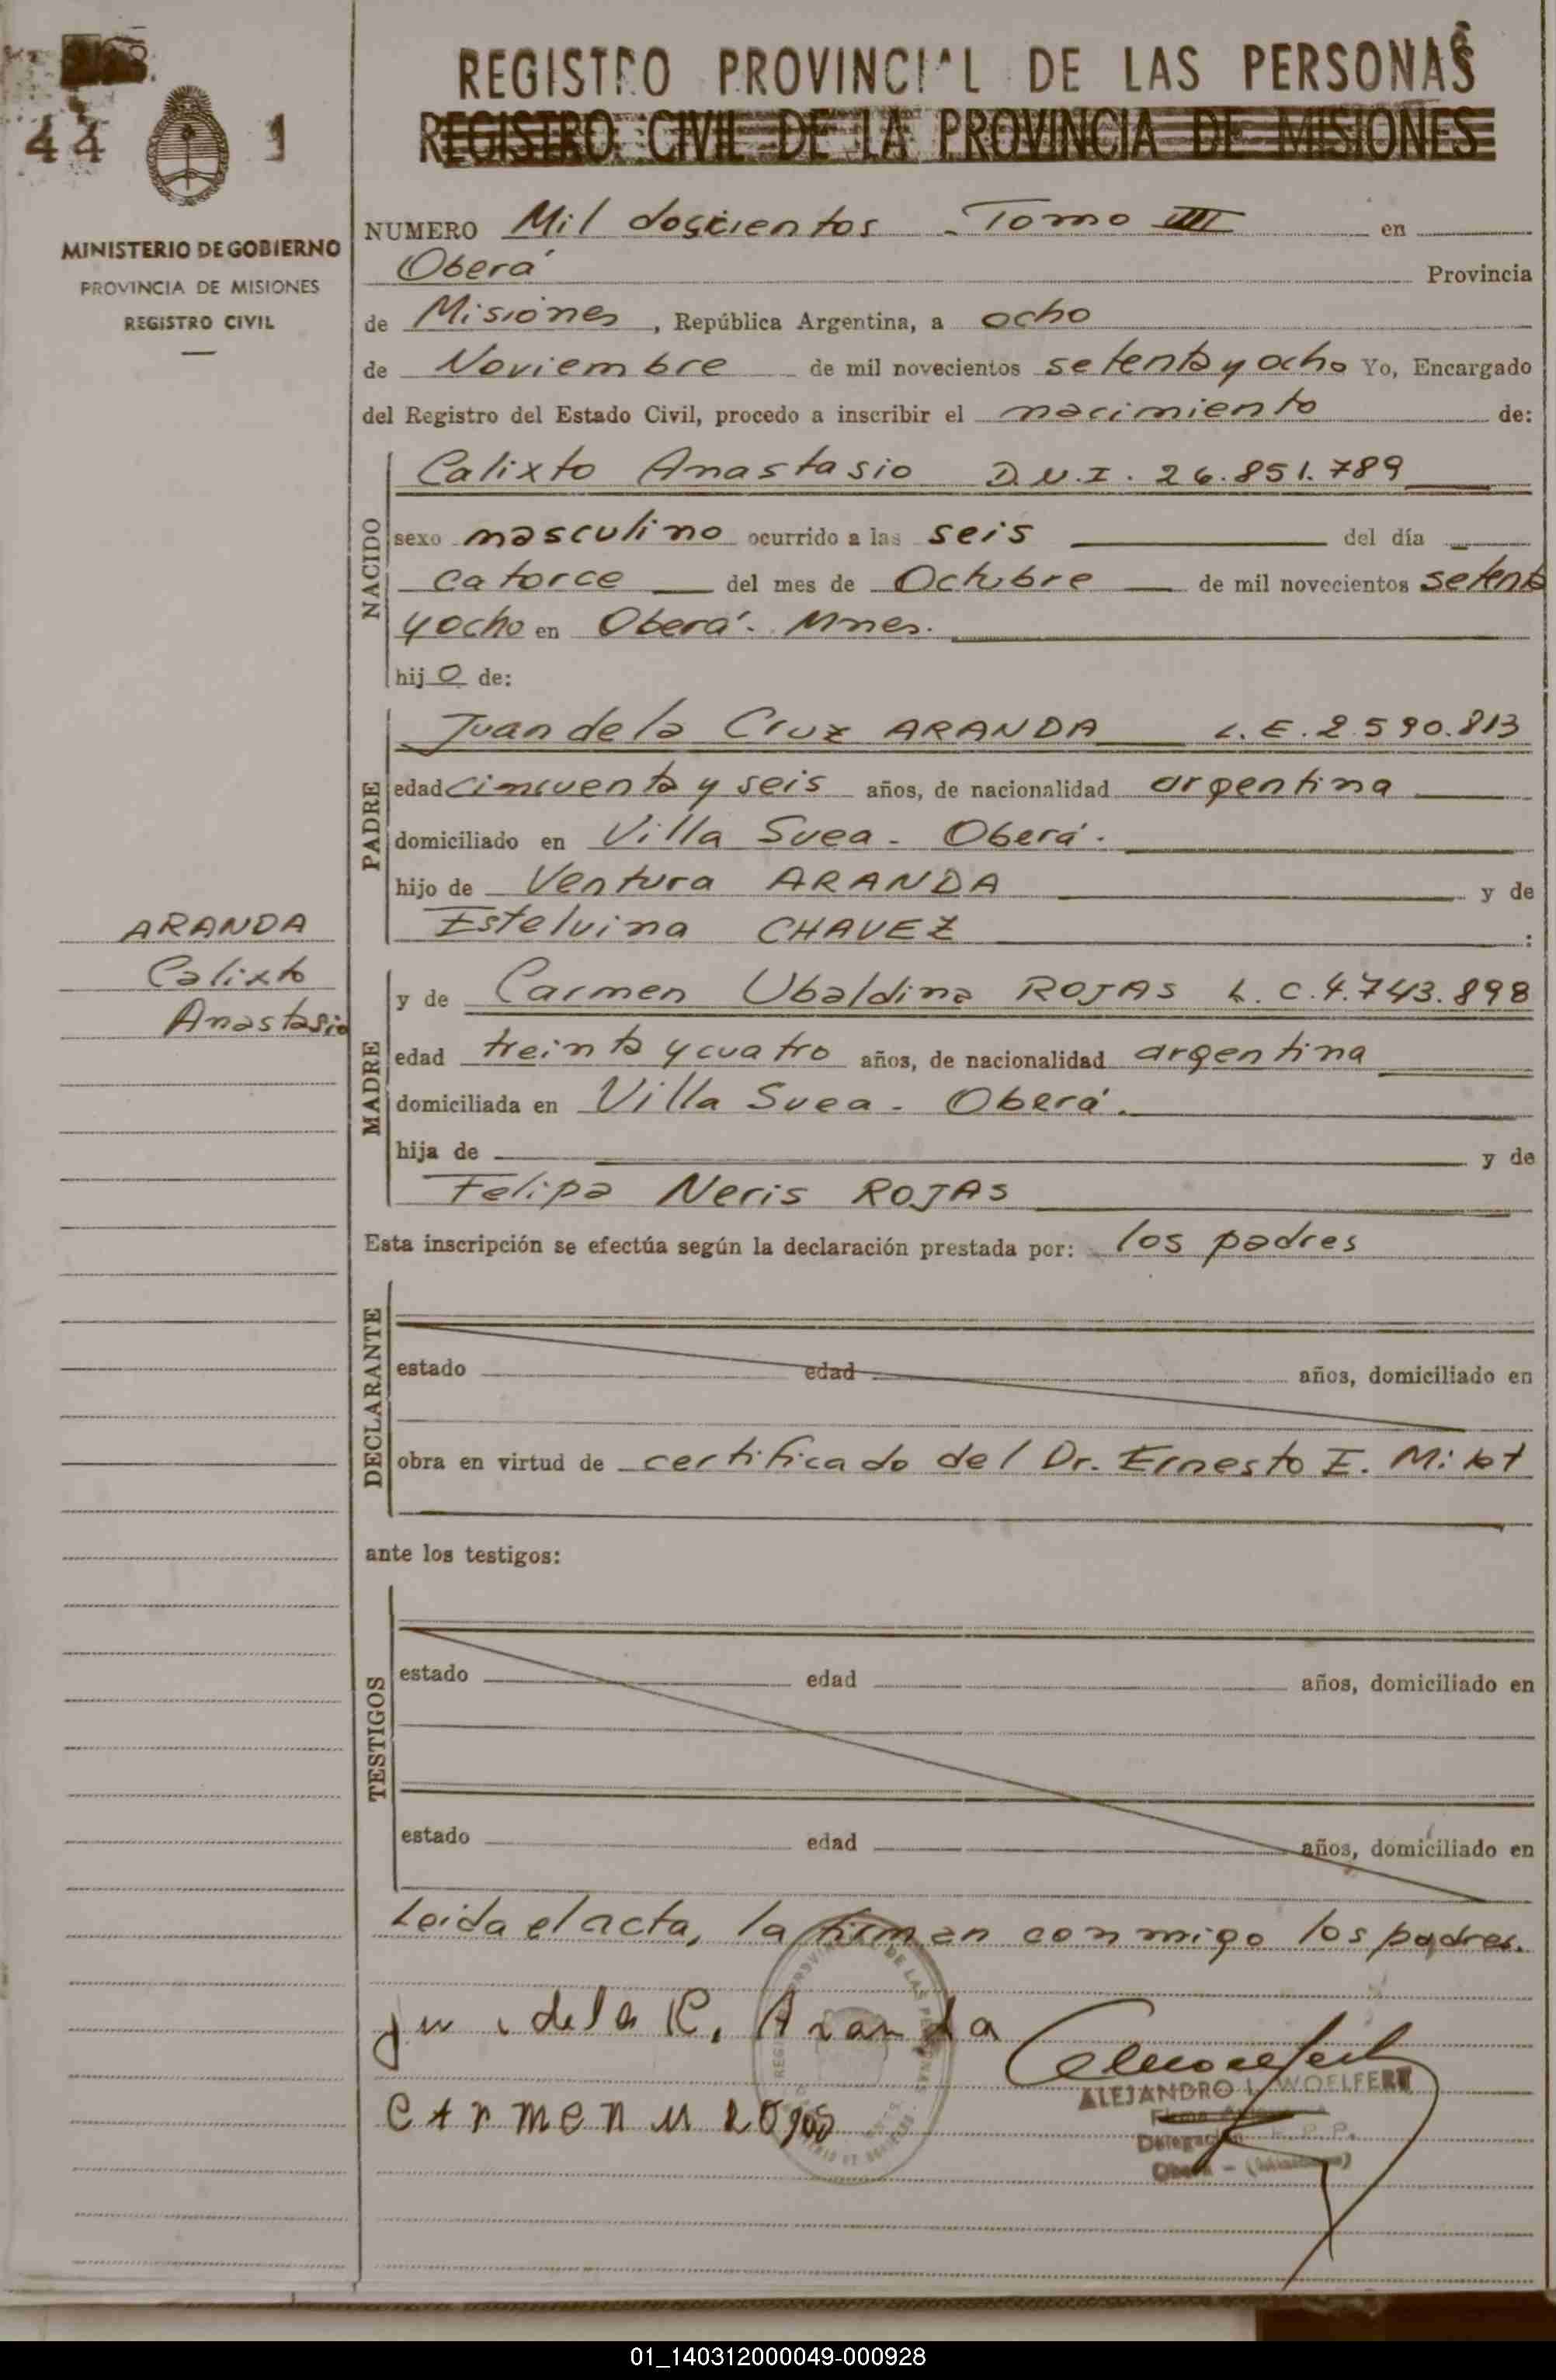 44 1
MINISTERIO DE GOBIERNO
PROVINCIA DE MISIONES
REGISTRO CIVIL
ARANDA
Calixto
Anastasio
REGISTRO PROVINCIAL DE LAS PERSONAS
REGISTRO CIVIL DE LA PROVINCIA DE MISIONES
NUMERO Mil doscientos - Tomo III en
Oberá Provincia
de Misiones, República Argentina, a ocho
de Noviembre de mil novecientos setenta y ocho Yo, Encargado
del Registro del Estado Civil, procedo a inscribir el nacimiento de:
NACIDO
Calixto Anastasio D.N.I. 26.851.789
sexo masculino ocurrido a las seis del día
catorce del mes de Octubre de mil novecientos setenta
y ocho en Oberá. Mnes.
hijo de:
PADRE
Juan de la Cruz ARANDA L.E. 2.590.813
edad cincuenta y seis años, de nacionalidad argentina
domiciliado en Villa Svea - Oberá.
hijo de Ventura ARANDA y de
Estelvina CHAVEZ :
MADRE
y de Carmen Ubaldina ROJAS L.C. 4.743.898
edad treinta y cuatro años, de nacionalidad argentina
domiciliada en Villa Svea - Oberá.
hija de y de
Felipa Neris ROJAS
Esta inscripción se efectúa según la declaración prestada por: los padres
DECLARANTE
estado edad años, domiciliado en
obra en virtud de certificado del Dr. Ernesto E.
ante los testigos:
TESTIGOS
estado edad años, domiciliado en
estado edad años, domiciliado en
Leida el acta, la firman conmigo los padres.
de la C. Aranda
ALEJANDRO L. WOELFERT
Carmen U Rojas
Delegación R. P. P.
Oberá - (Misiones)
01_140312000049-000928